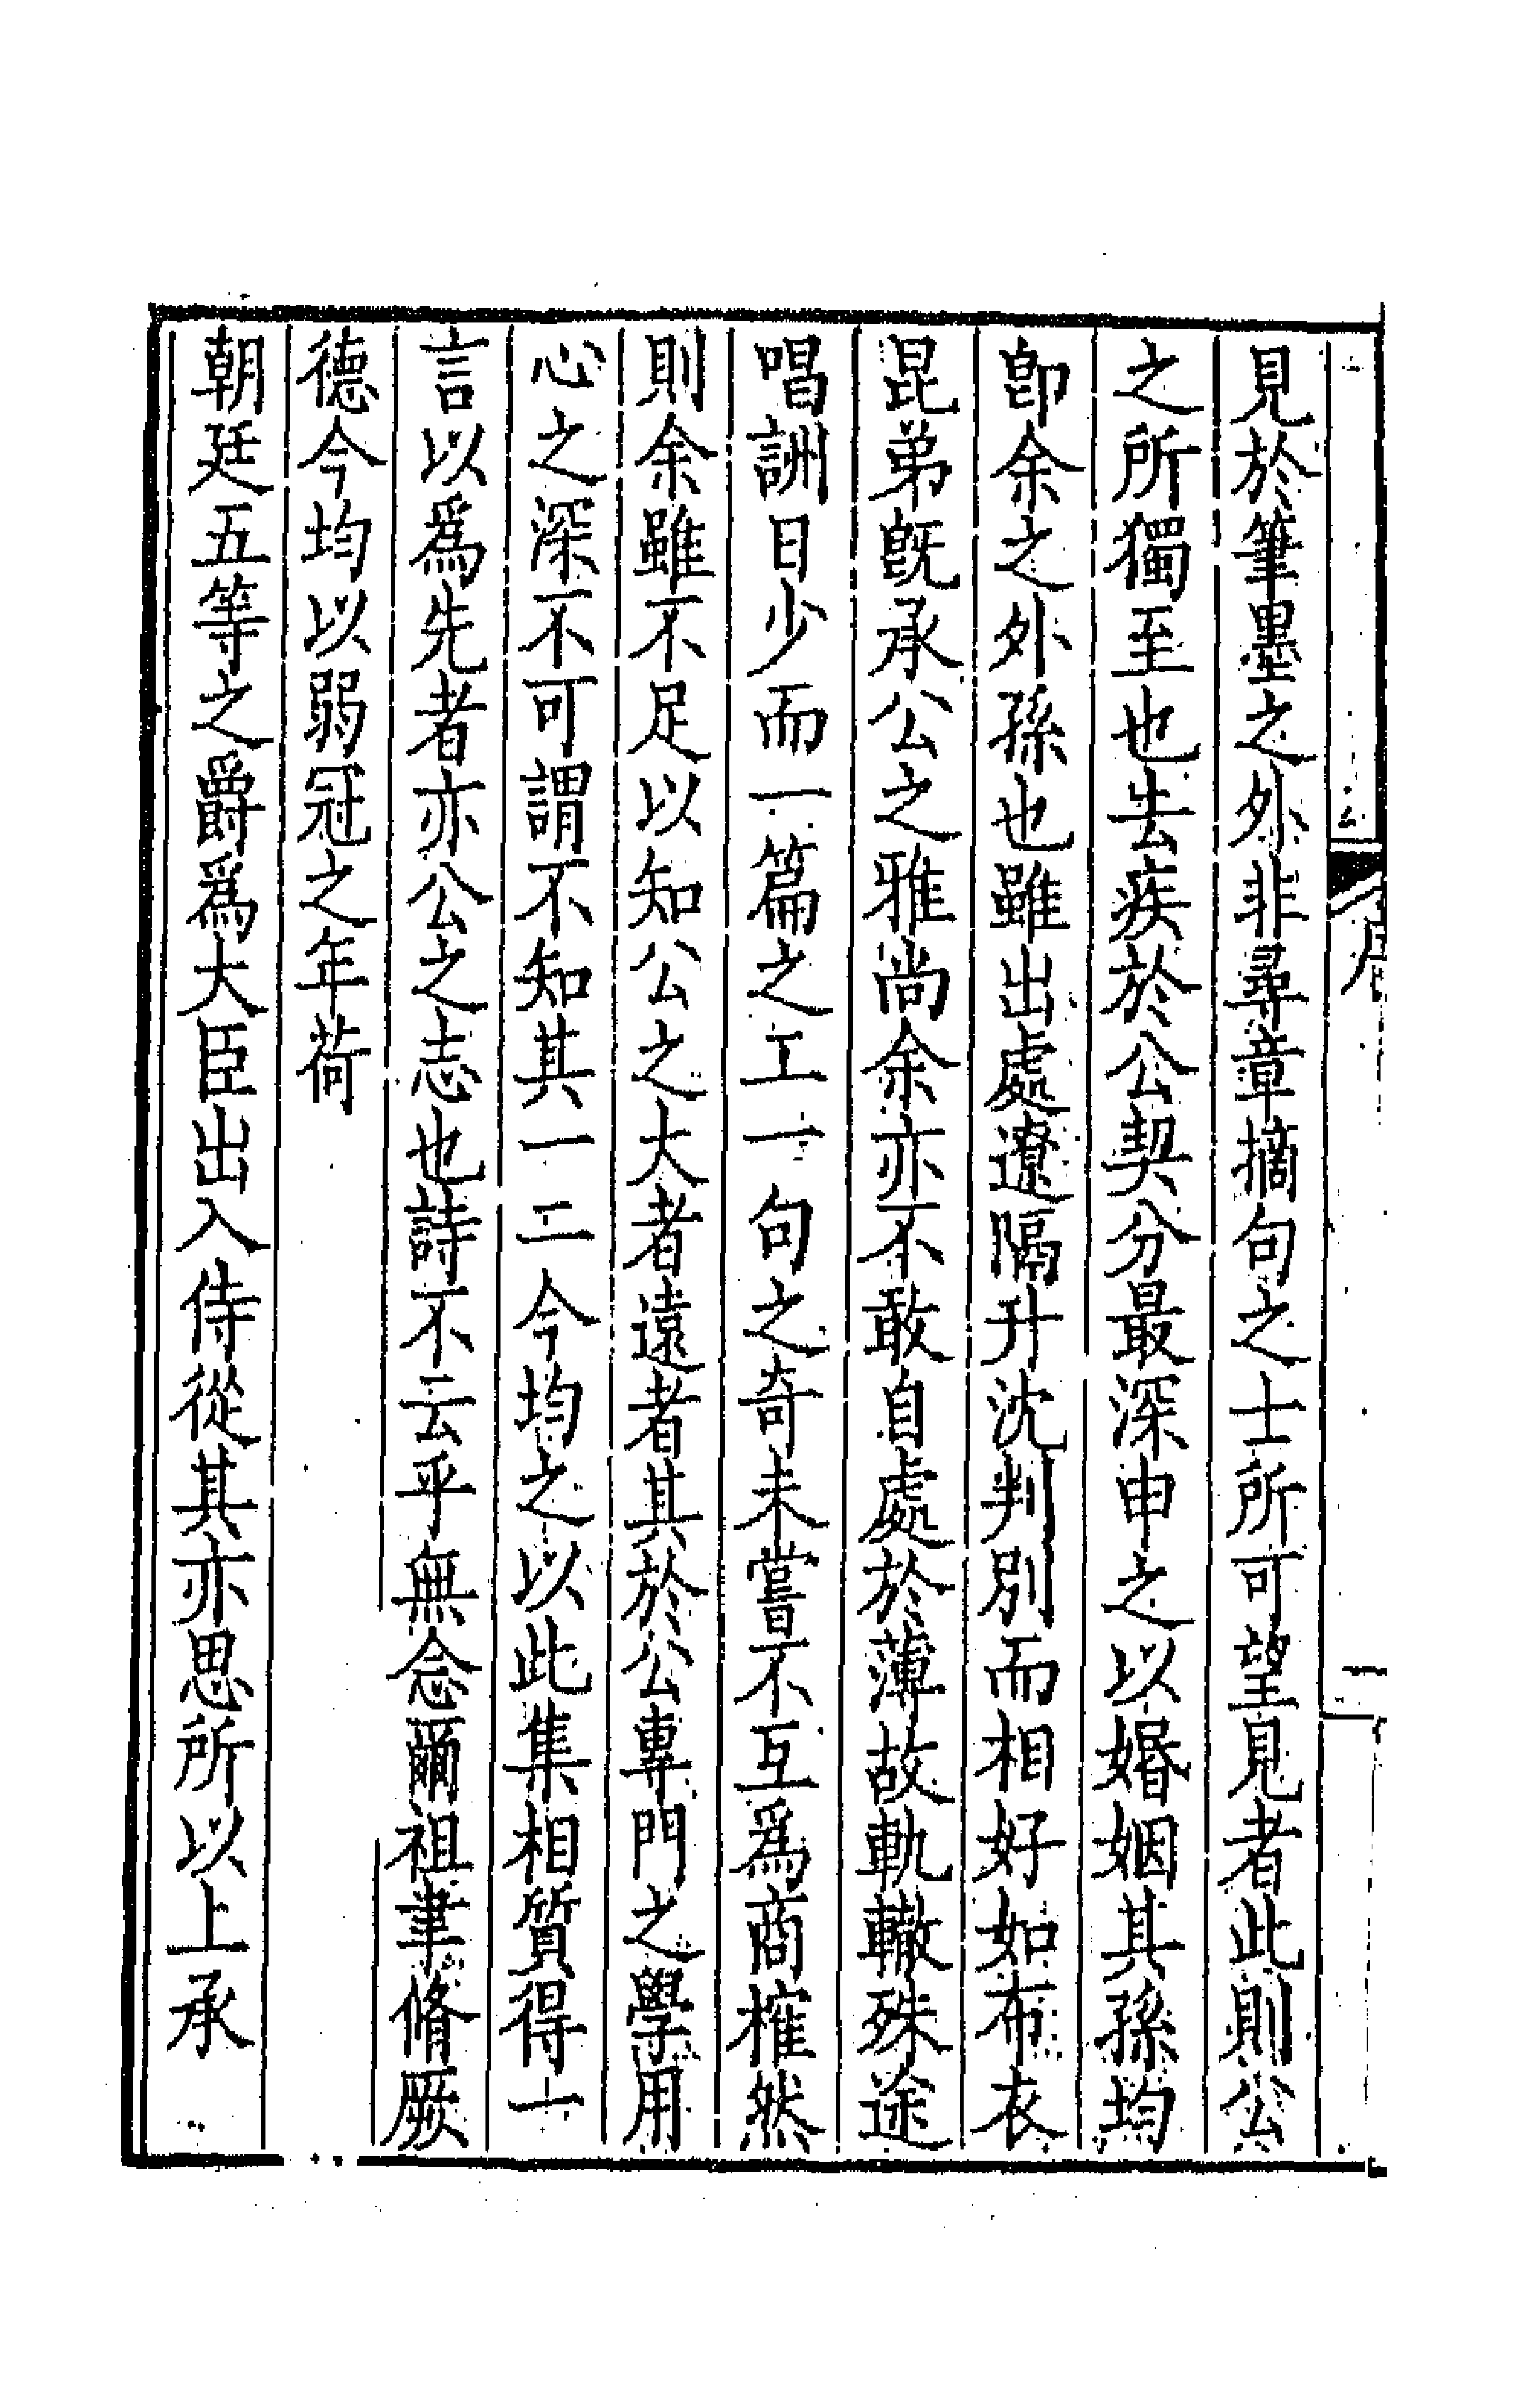 見於筆墨之外非尋章摘句之士所可望見者此則公
之所獨至也去疾於公契分最深申之以婚姻其孫均
卽余之外孫也雖出處遼隔升沈判別而相好如布衣
昆弟旣承公之雅尚余亦不敢自處於薄故軌轍殊途
唱詶日少而一篇之工一句之奇未嘗不互爲商榷然
則余雖不足以知公之大者遠者其於公專門之學用
心之深不可謂不知其一二今均之以此集相質得一
言以爲先者亦公之志也詩不云乎無念爾祖聿脩厥
德今均以弱冠之年荷
朝廷五等之爵爲大臣出入侍從其亦思所以上承
序
一